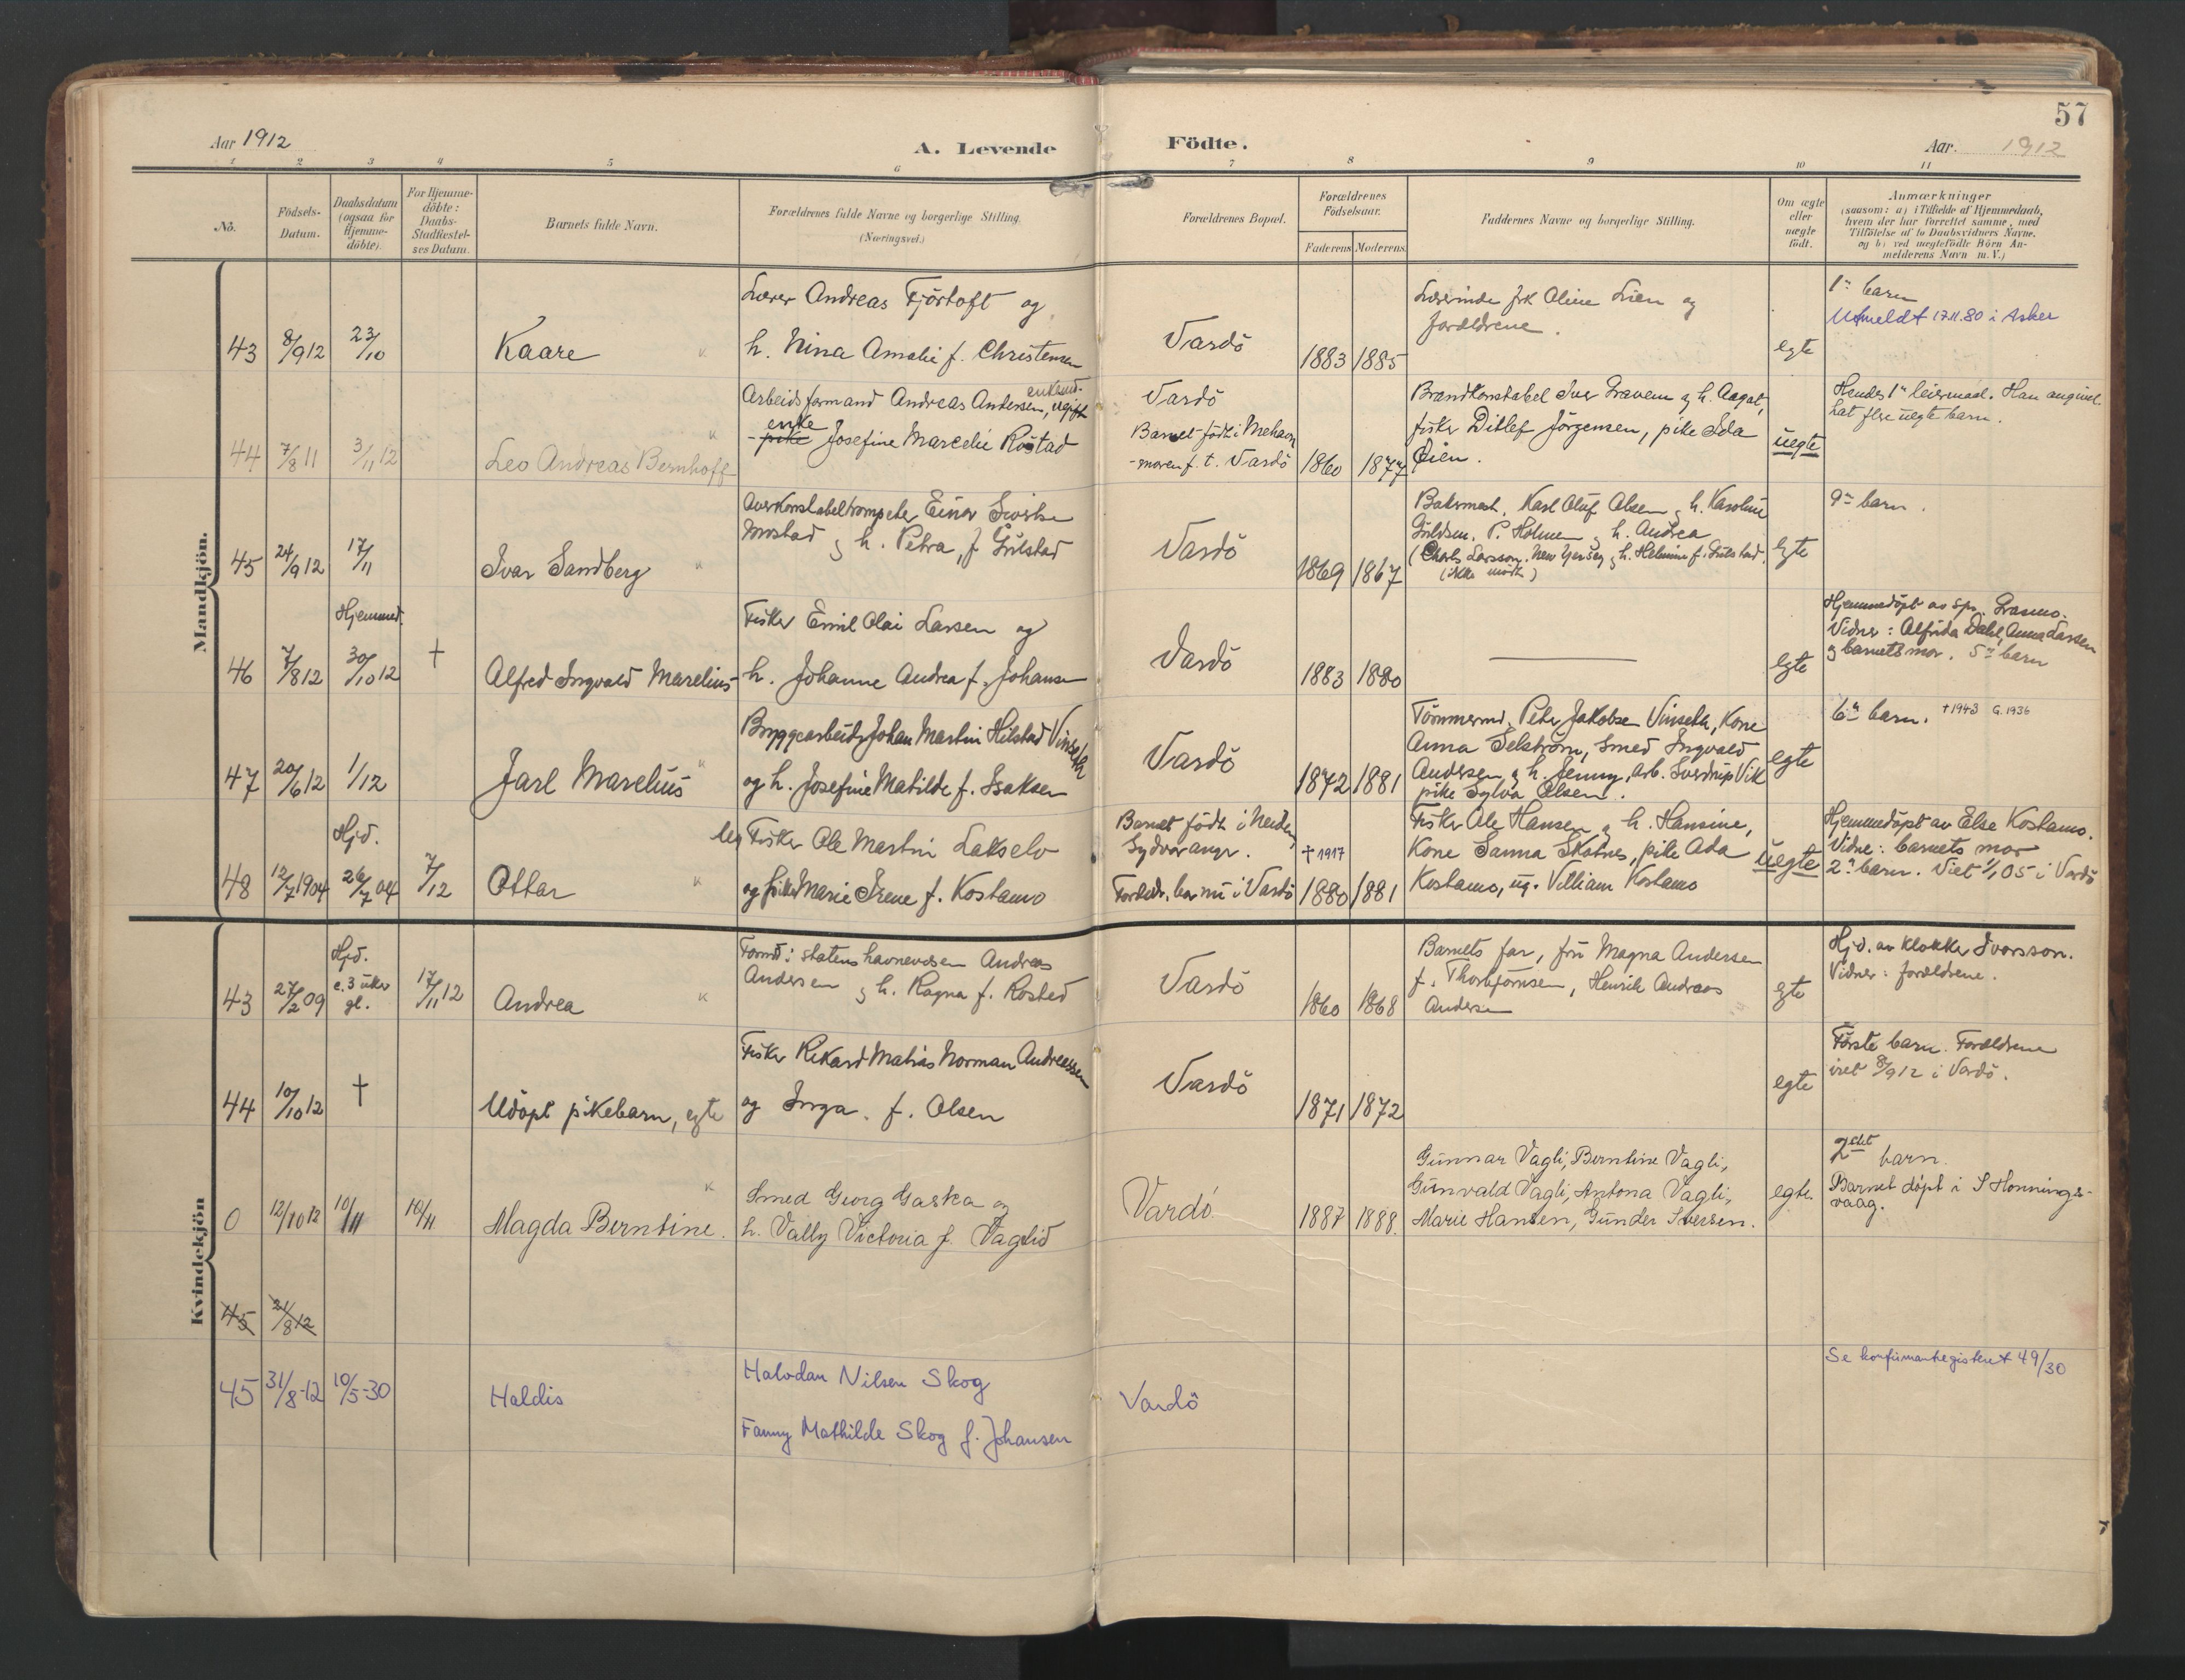 57
Aar 1912
A. Levende
Födte.
Aar. 1912
1 2 3 4 5 6 7 8 9 10 11
No.
Födsels-
Datum.
Daabsdatum
(ogsaa for
Hjemme-
döbte).
For Hjemme-
döbte:
Daabs-
Stadfæstel-
ses Datum.
Barnets fulde Navn.
Forældrenes fulde Navne og borgerlige Stilling.
(Næringsvei.)
Forældrenes Bopæl.
Forældrenes
Födselsaar.
Faderens Moderens
Faddernes Navne og borgerlige Stilling.
Om ægte
eller
uægte
födt.
Anmærkninger
(saasom: a) i Tilfælde af Hjemmedaab,
hvem der har forrettet samme, med
Tilföielse af to Daabsvidners Navne,
og b) ved uægtefödte Börn An-
melderens Navn m. V.)
Mandkjön.
43
8/9 12
23/10
Kaare
Lærer Andreas Fjörtoft og
h. Nina Amalie f. Christensen
Vardö
1883 1885
Lærerinde frk Oline Lien og
forældrene.
egte
1ste barn
Utmeldt 17.11.80 i Asker
44
7/8 11
3/11 12
Leo Andreas Bernhoff
Arbeidsformand Andreas Andersen, enkemd. ugift
enke
- pike Josefine Marcelie Rostad
Vardö
Barnet födt i Mehavn
- moren f. t. Vardö
1860 1877
Brandkonstabel Iver Gravem og h. Aagot,
fisker Ditlef Jörgensen, pike Ida
Öien.
uegte
Hendes 1ste leiermaal. Han angivel.
hat flere uegte barn.
45
24/9 12
17/11
Ivar Sandberg
Overkonstabeltrompeter Einar Sivertsen
Mostad og h. Petra, f. Gülstad
Vardö
1869 1867
Bakermest. Karl Oluf Olsen og h. Karoline
Guldsm. P. Holmen og h. Andrea
(Charls Larsson, New Yersey og h. Helmine f. Gulstad.
(ikke mödt)
egte
9de barn.
46
7/8 12
Hjemmed.
30/10 12
†
Alfred Ingvald Marelius
Fisker Emil Olai Larsen og
h. Johanne Andrea f. Johansen
Vardö
1883 1880
egte
Hjemmedöpt av spr. Grasmo.
Vidner: Alfrida Dahl, Anna Larsen
og barnets mor. 5te barn
47
20/6 12
1/12
Jarl Marelius
Bryggearbeider Johan Martin Hilstad Vinseth
og h. Josefine Matilde f. Isaksen
Vardö
1872 1881
Tömmermd. Peter Jakobsen Vinseth, Kone
Anna Selström, Smed Ingvald
Andersen og h. Jenny, Arb. Sverdrup Vik
pike Sylva Olsen.
egte
6te barn. †1943 G. 1936
48
12/7 1904
Hjd.
26/7 04
7/12
Ottar
Fisker Ole Martin Lakselv
og pike Marie Irene f. Kostamo
Barnet födt i Neiden
Sydvaranger.
Foreldr. bor nu i Vardö
† 1917
1880 1881
Fisker Ole Hansen og h. Hansine,
Kone Sanna Skatnes, pike Ada
Kostamo, ug. Villiam Kostamo
uegte
Hjemmedöpt av Else Kostamo.
Vidne: barnets mor
2det barn. Viet 1/1 05 i Vardö
Kvindekjön
43
27/2 09
Hjd.
c. 3 uker
gl.
17/11 12
Andrea
Formd. i statens havnevæsen Andreas
Andersen og h. Ragna f. Rosted
Vardö
1860 1868
Barnets far, fru Magna Andersen
f. Thorbjörnsen, Henrik Andreas
Andersen
egte
Hjd. av Klokker Ivarsson.
Vidner: forældrene.
44
10/10 12
†
Udöpt pikebarn, egte
Fisker Rikard Matias Norman Andreassen
og Inga. f. Olsen
Vardö
1871 1872
egte
Förste barn. Forældrene
viet 8/9 12 i Vardö.
0
12/10 12
10/11
10/11
Magda Berntine.
Smed Georg Gaska og
h. Vally Victoria f. Vaglid
Vardö
1887 1888.
Gunnar Vagli, Berntine Vagli,
Gunvald Vagli, Antona Vagli,
Marie Hansen, Gunder Iversen.
egte.
2det barn.
Barnet döpt i S Honnings-
vaag.
45
21/8 12
45
31/8-12
10/5-30
Haldis
Halvdan Nilsen Skog
Fanny Mathilde Skog f. Johansen
Vardö
Se konfirmantregisteret 49/30